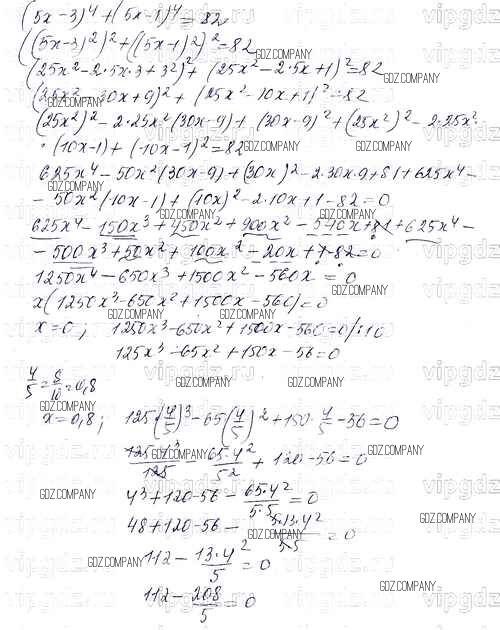 (5x-3)⁴+(5x-1)⁴=82
((5x-3)²)²+((5x-1)²)²=82
(25x²-2·5x·3+3²)²+(25x²-2·5x+1)²=82
(25x²-30x+9)²+(25x²-10x+1)²=82
(25x²)²-2·25x²(30x-9)+(30x-9)²+(25x²)²-2·25x²·
·(10x-1)+(10x-1)²=82
625x⁴-50x²(30x-9)+(30x)²-2·30x·9+81+625x⁴-
-50x²(10x-1)+(10x)²-2·10x+1-82=0
625x⁴-150x³+450x²+900x²-540x+81+625x⁴-
-500x³+50x²+100x²-20x+1-82=0
1250x⁴-650x³+1500x²-560x=0
x(1250x³-650x²+1500x-560)=0
x=0; 1250x³-650x²+1500x-560=0/:10
125x³-65x²+150x-56=0
4/5=8/10=0,8
x=0,8; 125(4/5)³-65(4/5)²+150·4/5-56=0
125·4³/125-65·4²/5²+120-56=0
4³+120-56-65·4²/5·5=0
48+120-56-5·13·4²/5·5=0
112-13·4²/5=0
112-208/5=0
GDZ.COMPANY
vipgdz.ru